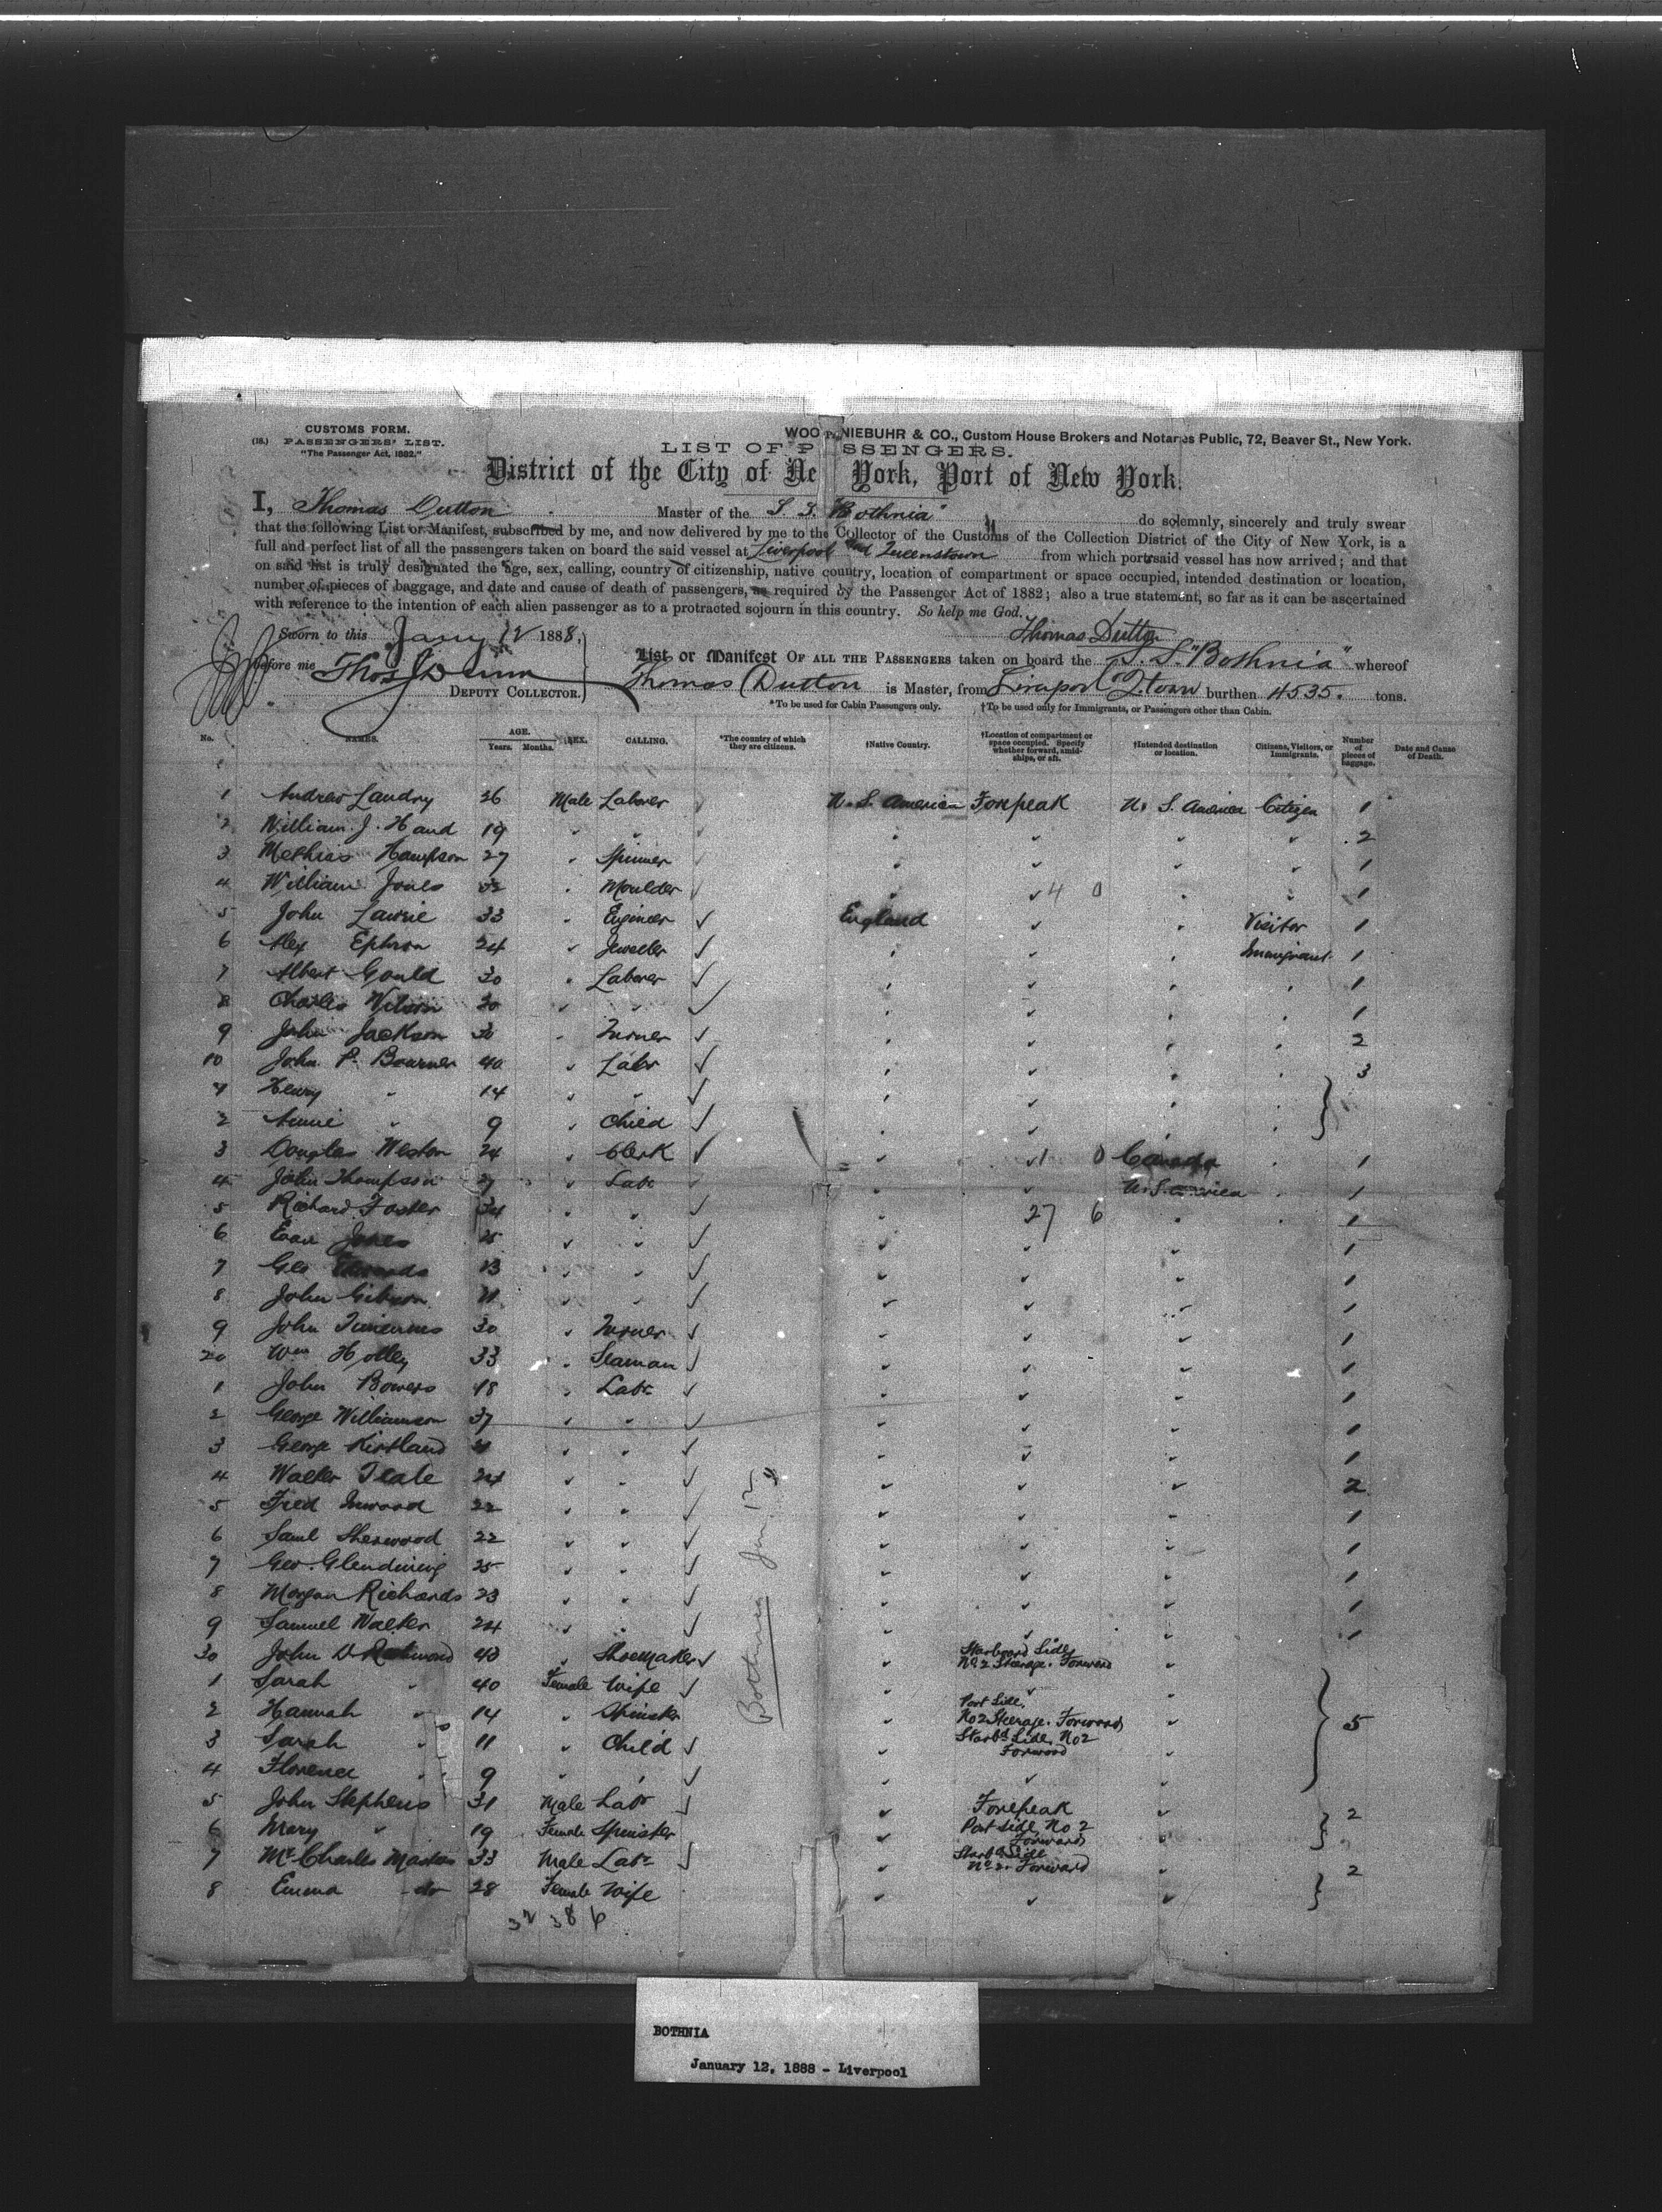 CUSTOMS FORM.
(18.) PASSENGERS' LIST.
"The Passenger Act, 1882."
WOO NIEBUHR & CO., Custom House Brokers and Notaries Public, 72, Beaver St., New York.
LIST OF P SSENGERS.
District of the City of Ne York, Port of New York.
I, Thomas Dutton Master of the S. S. "Bothnia" do solemnly, sincerely and truly swear
that the following List or Manifest, subscribed by me, and now delivered by me to the Collector of the Customs of the Collection District of the City of New York, is a
full and perfect list of all the passengers taken on board the said vessel at Liverpool and Queenstown from which port said vessel has now arrived; and that
on said list is truly designated the age, sex, calling, country of citizenship, native country, location of compartment or space occupied, intended destination or location,
number of pieces of baggage, and date and cause of death of passengers, as required by the Passenger Act of 1882; also a true statement, so far as it can be ascertained
with reference to the intention of each alien passenger as to a protracted sojourn in this country. So help me God.
Sworn to this Jany 12 1888. Thomas Dutton
before me Thos Dunn
DEPUTY COLLECTOR.
List or Manifest OF ALL THE PASSENGERS taken on board the S. S. "Bothnia" whereof
Thomas Dutton is Master, from Liverpool & Q.town burthen 4535. tons.
*To be used for Cabin Passengers only. †To be used only for Immigrants, or Passengers other than Cabin.
No. NAMES. AGE. Years. Months. SEX. CALLING. *The country of which they are citizens. †Native Country. †Location of compartment or space occupied. Specify whether forward, amidships, or aft. †Intended destination or location. Citizens, Visitors, or Immigrants. Number of pieces of baggage. Date and Cause of Death.
1 Andrew Landry 26 Male Laborer U. S. America Forepeak U. S. America Citizen 1
2 William J. Hand 19 " " " " " " 2
3 Methias Hampson 27 " Spinner " " " " 1
4 William Jones 32 " Moulder " " 4 0 " " 1
5 John Lawrie 33 " Engineer England " " Visitor 1
6 Alex Ephron 24 " Jeweller " " " Immigrant 1
7 Albert Gould 30 " Laborer " " " " 1
8 Charles Wilson 30 " " " " " " 1
9 John Jackson 30 " Turner " " " " 2
10 John P. Bourner 40 " Labr " " " " 3
1 Henry " 14 " " " " " "
2 Annie " 9 " Child " " " "
3 Douglas Weston 24 " Clerk " " 1 0 Canada " 1
4 John Thompson 27 " Labr " " U. S. America " 1
5 Richard Foster 34 " " " 27 6 " " 1
6 Evan Jones 25 " " " " " 1
7 Geo Edwards 23 " " " " " 1
8 John Gibson 21 " " " " " 1
9 John Timmins 30 " Turner " " " 1
20 Wm Holley 33 " Seaman " " " 1
1 John Bowers 48 " Labr " " " 1
2 George Williamson 37 " " " " " 1
3 George Kirkland 21 " " " " " 1
4 Walter Teale 24 " " " " " 2
5 Fred Inwood 22 " " " " " 1
6 Saml Sherwood 22 " " " " " 1
7 Geo. Glendining 25 " " " " " 1
8 Morgan Richards 23 " " " " " 1
9 Samuel Walker 24 " " " " " 1
30 John D Redmond 43 " Shoemaker " Starboard Side No. 2 Steerage. Forward "
1 Sarah " 40 Female Wife " " "
2 Hannah " 14 " Spinster " Port Side. No 2 Steerage. Forward "
3 Sarah " 11 " Child " Starbd Side No 2 Forward " 5
4 Florence " 9 " " " " "
5 John Stephens 31 Male Labr " Forepeak " 2
6 Mary " 19 Female Spinster " Port Side No 2 Forward "
7 Mr Charles Masters 33 Male Labr " Starbd Side No 2. Forward " 2
8 Emma do 28 Female Wife " " "
32 38 6
Bothnia Jan 12
BOTHNIA
January 12, 1888 - Liverpool